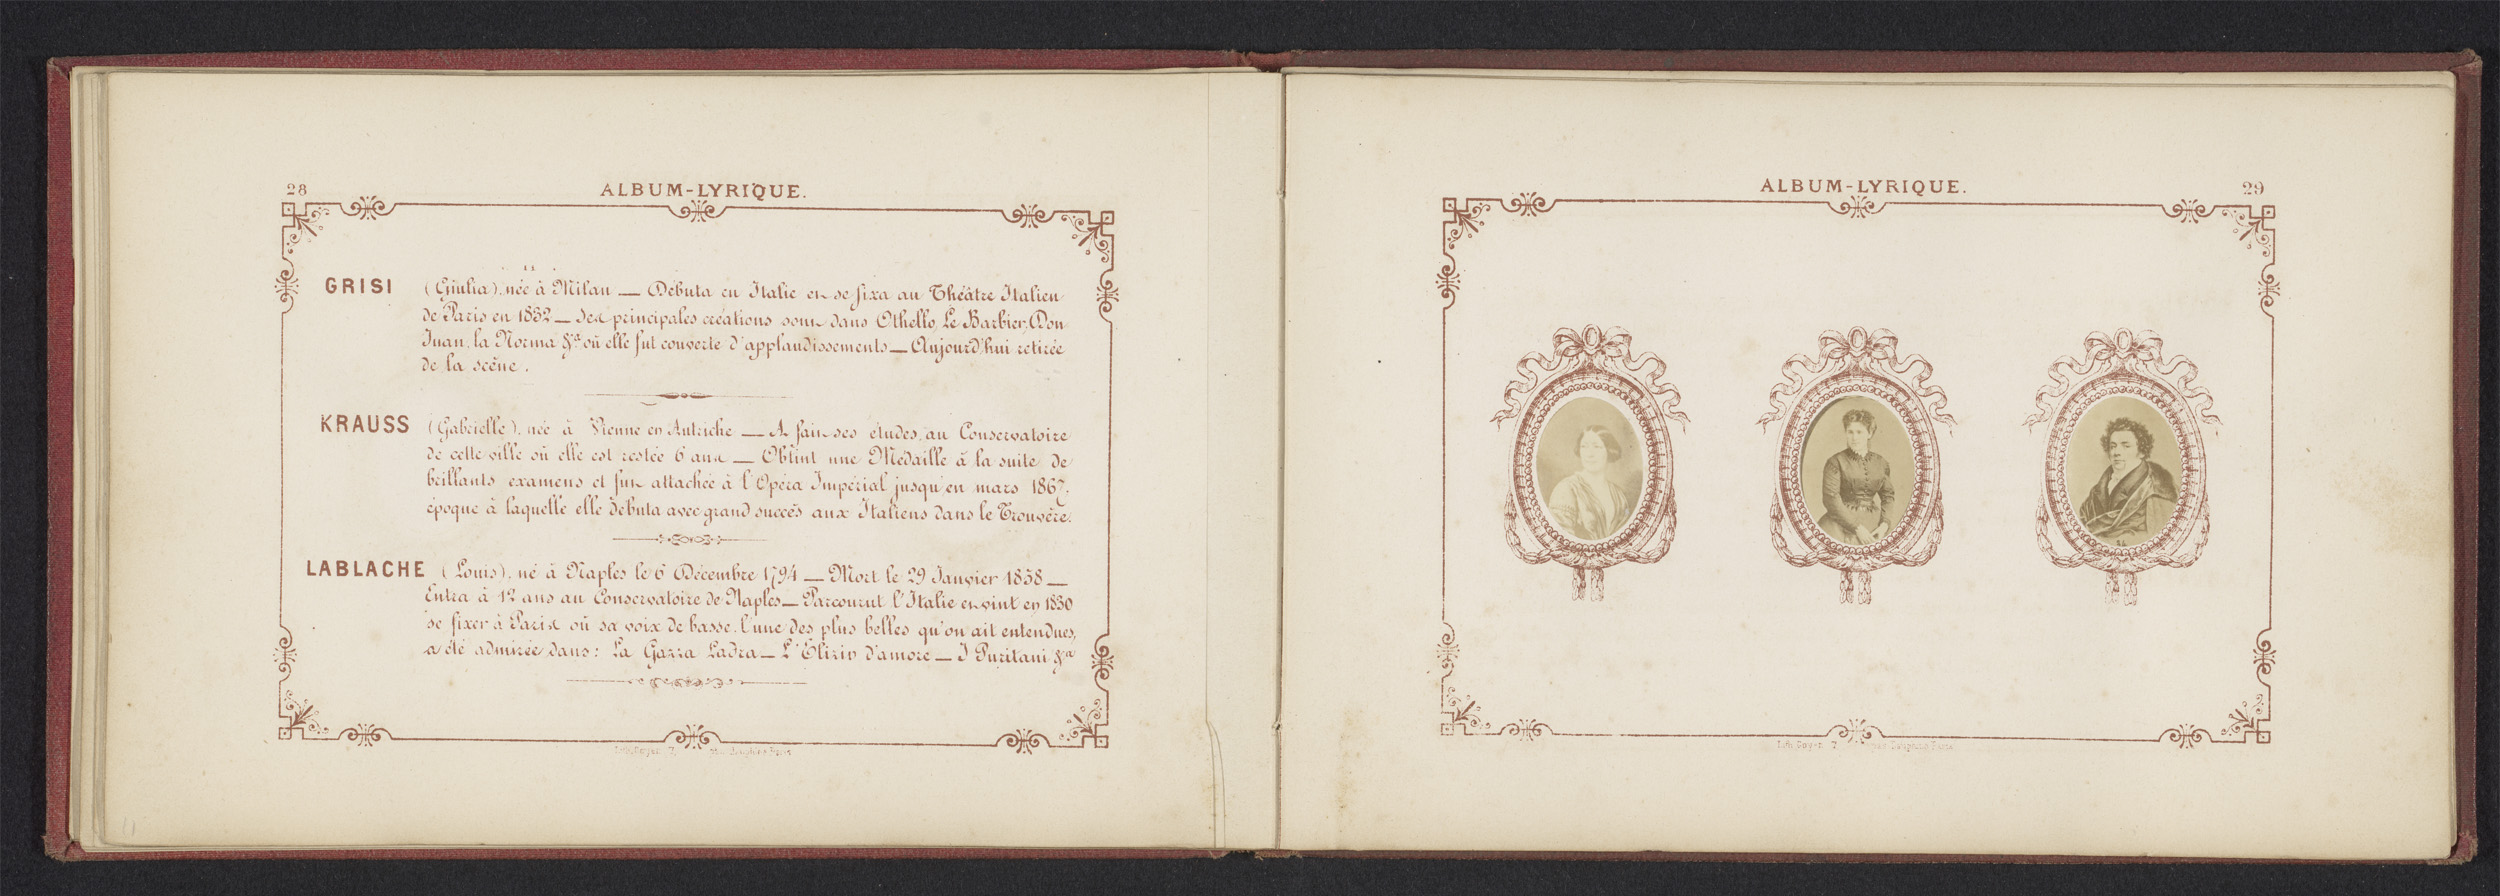 28
ALBUM-LYRIQUE.
GRISI (Giulia), née à Milan — Débuta en Italie et se fixa au Théâtre Italien
de Paris en 1832 — Ses principales créations sont dans Othello, Le Barbier, Don
Juan, la Norma &a où elle fut couverte d'applaudissements — Aujourd'hui retirée
de la scène.
KRAUSS (Gabrielle), née à Vienne en Autriche — A fait ses études, au Conservatoire
de cette ville où elle est restée 6 ans — Obtint une Médaille à la suite de
brillants examens et fut attachée à l'Opéra Impérial jusqu'en mars 1867,
époque à laquelle elle débuta avec grand succès aux Italiens dans le Trouvère.
LABLACHE (Louis), né à Naples le 6 Décembre 1794 — Mort le 29 Janvier 1858 —
Entra à 12 ans au Conservatoire de Naples — Parcourut l'Italie et vint en 1830
se fixer à Paris où sa voix de basse, l'une des plus belles qu'on ait entendues,
a été admirée dans: La Gazza Ladra — L'Elixir d'amore — I Puritani &a
ALBUM-LYRIQUE.
29